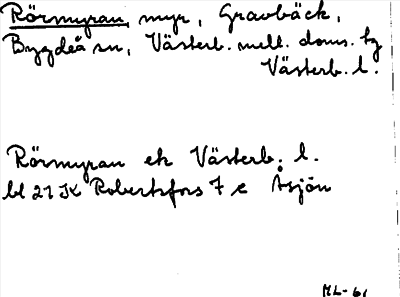 Rörmyran, myr, Gravbäck,
Bygdeå sn, Västerb. mell. doms. tg
Västerb. l.
Rörmyran ek Västerb. l.
bl 21 K Robertsfors 7 e Åsjön
ML-61